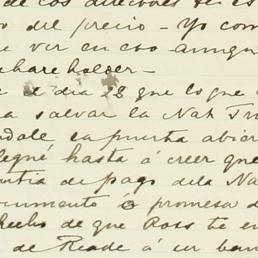 de los directores
del precio - Yo com
ver en eso
share holder -
el dia 28 que lo que
a salvar la Nat Tru
dale la puerta abier
llegué hasta á creer que
de pago de la Na
documento ó promesa d
hecho de que Ross te en
de Reade á un ban